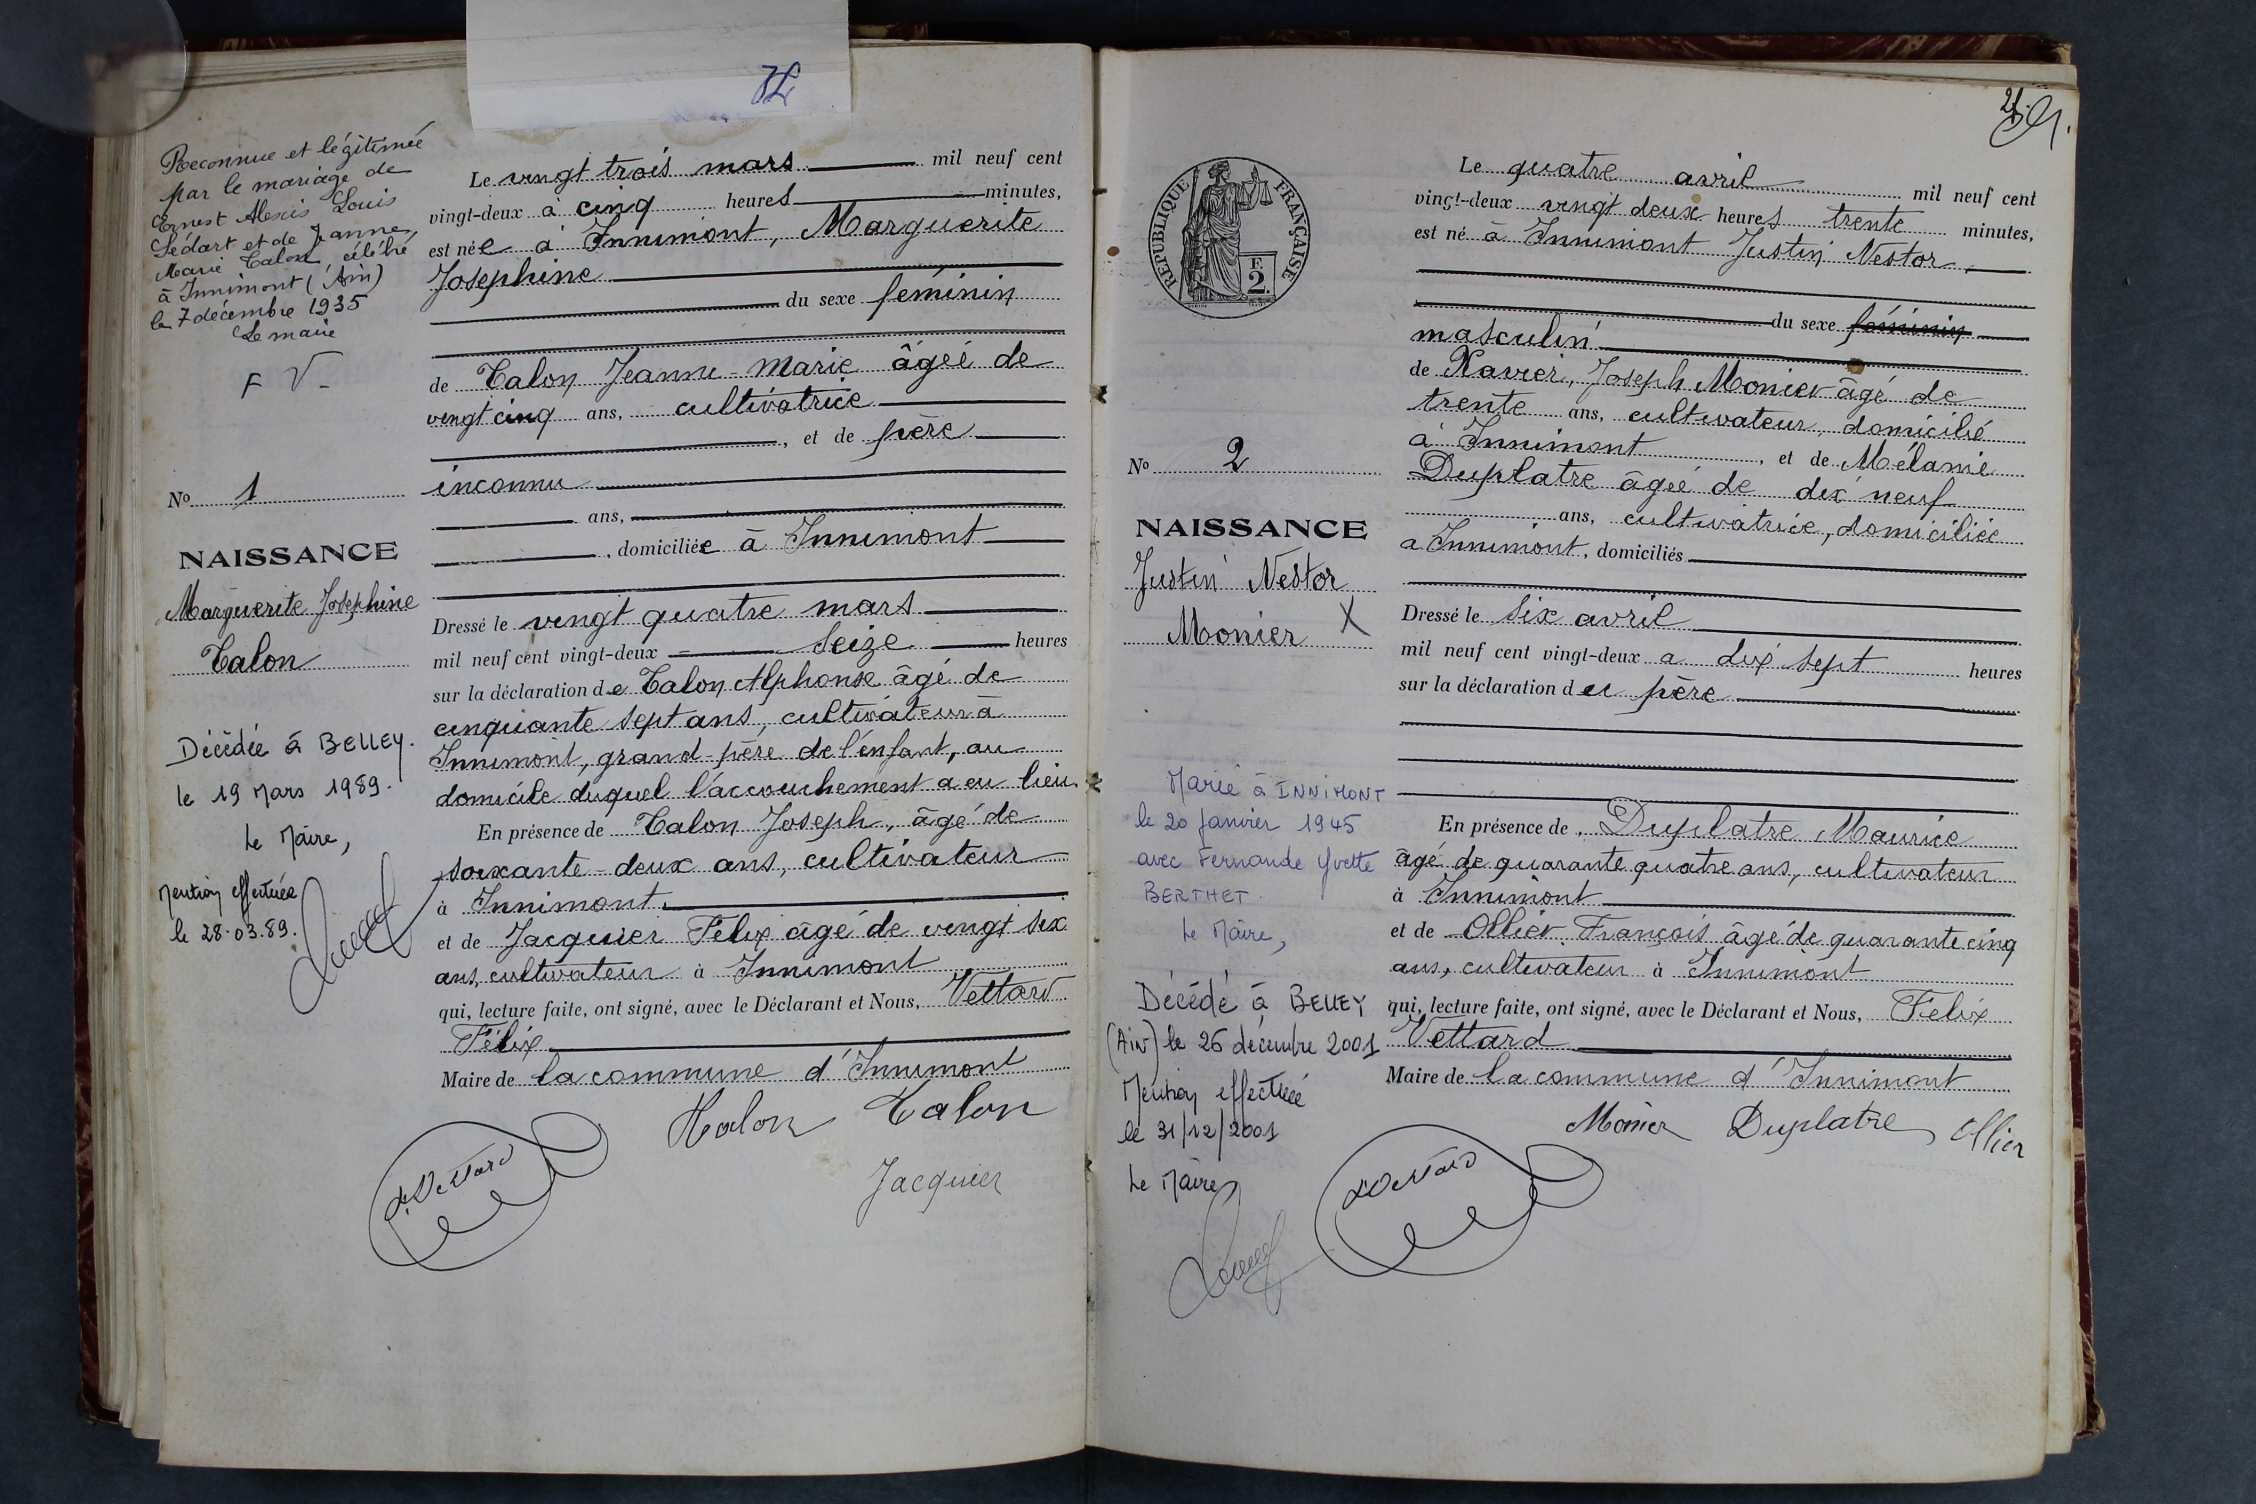 Reconnue et légitimée
par le mariage de
Ernest Alexis Louis
Sédart et de Jeanne,
Marie Talon, célébré
à Innimont (Ain)
le 7 décembre 1935
Le maire
F V
No 1
NAISSANCE
Marguerite Josephine
Talon
Décédée à BELLEY.
le 19 Mars 1989.
Le Maire,
Mention effectuée
le 28.03.89.
Le vingt trois mars mil neuf cent
vingt-deux à cinq heures minutes,
est née à Innimont, Marguerite
Josephine
du sexe féminin
de Talon Jeanne-Marie âgée de
vingt cinq ans, cultivatrice
, et de père
inconnu
ans,
, domiciliée à Innimont
Dressé le vingt quatre mars
mil neuf cent vingt-deux seize heures
sur la déclaration de Talon Alphonse âgé de
cinquante sept ans, cultivateur à
Innimont, grand-père de l'enfant, au
domicile duquel l'accouchement a eu lieu.
En présence de Talon Joseph, âgé de
soixante-deux ans, cultivateur
à Innimont.
et de Jacquier Félix âgé de vingt six
ans, cultivateur à Innimont
qui, lecture faite, ont signé, avec le Déclarant et Nous, Vettard
Félix
Maire de la commune d'Innimont
Talon Talon
F. Vettard
Jacquier
21
RÉPUBLIQUE FRANÇAISE
F.
2.
No 2
NAISSANCE
Justin Nestor
Monier X
Marié à INNIMONT
le 20 janvier 1945
avec Fernande Yvette
BERTHET.
Le Maire,
Décédé à BELLEY
(Ain) le 26 décembre 2001
Mention effectuée
le 31/12/2001
Le Maire
Le quatre avril mil neuf cent
vingt-deux vingt deux heures trente minutes,
est né à Innimont Justin Nestor,
du sexe féminin
masculin
de Xavier, Joseph Monier âgé de
trente ans, cultivateur, domicilié
à Innimont, et de Mélanie
Duplatre âgée de dix neuf
ans, cultivatrice, domiciliée
a Innimont, domiciliés
Dressé le six avril
mil neuf cent vingt-deux a dix sept heures
sur la déclaration du père
En présence de Duplatre Maurice
âgé de quarante quatre ans, cultivateur
à Innimont
et de Ollier François âgé de quarante cinq
ans, cultivateur à Innimont
qui, lecture faite, ont signé, avec le Déclarant et Nous, Félix
Vettard
Maire de la commune d'Innimont
Monier Duplatre Ollier
F. Vettard